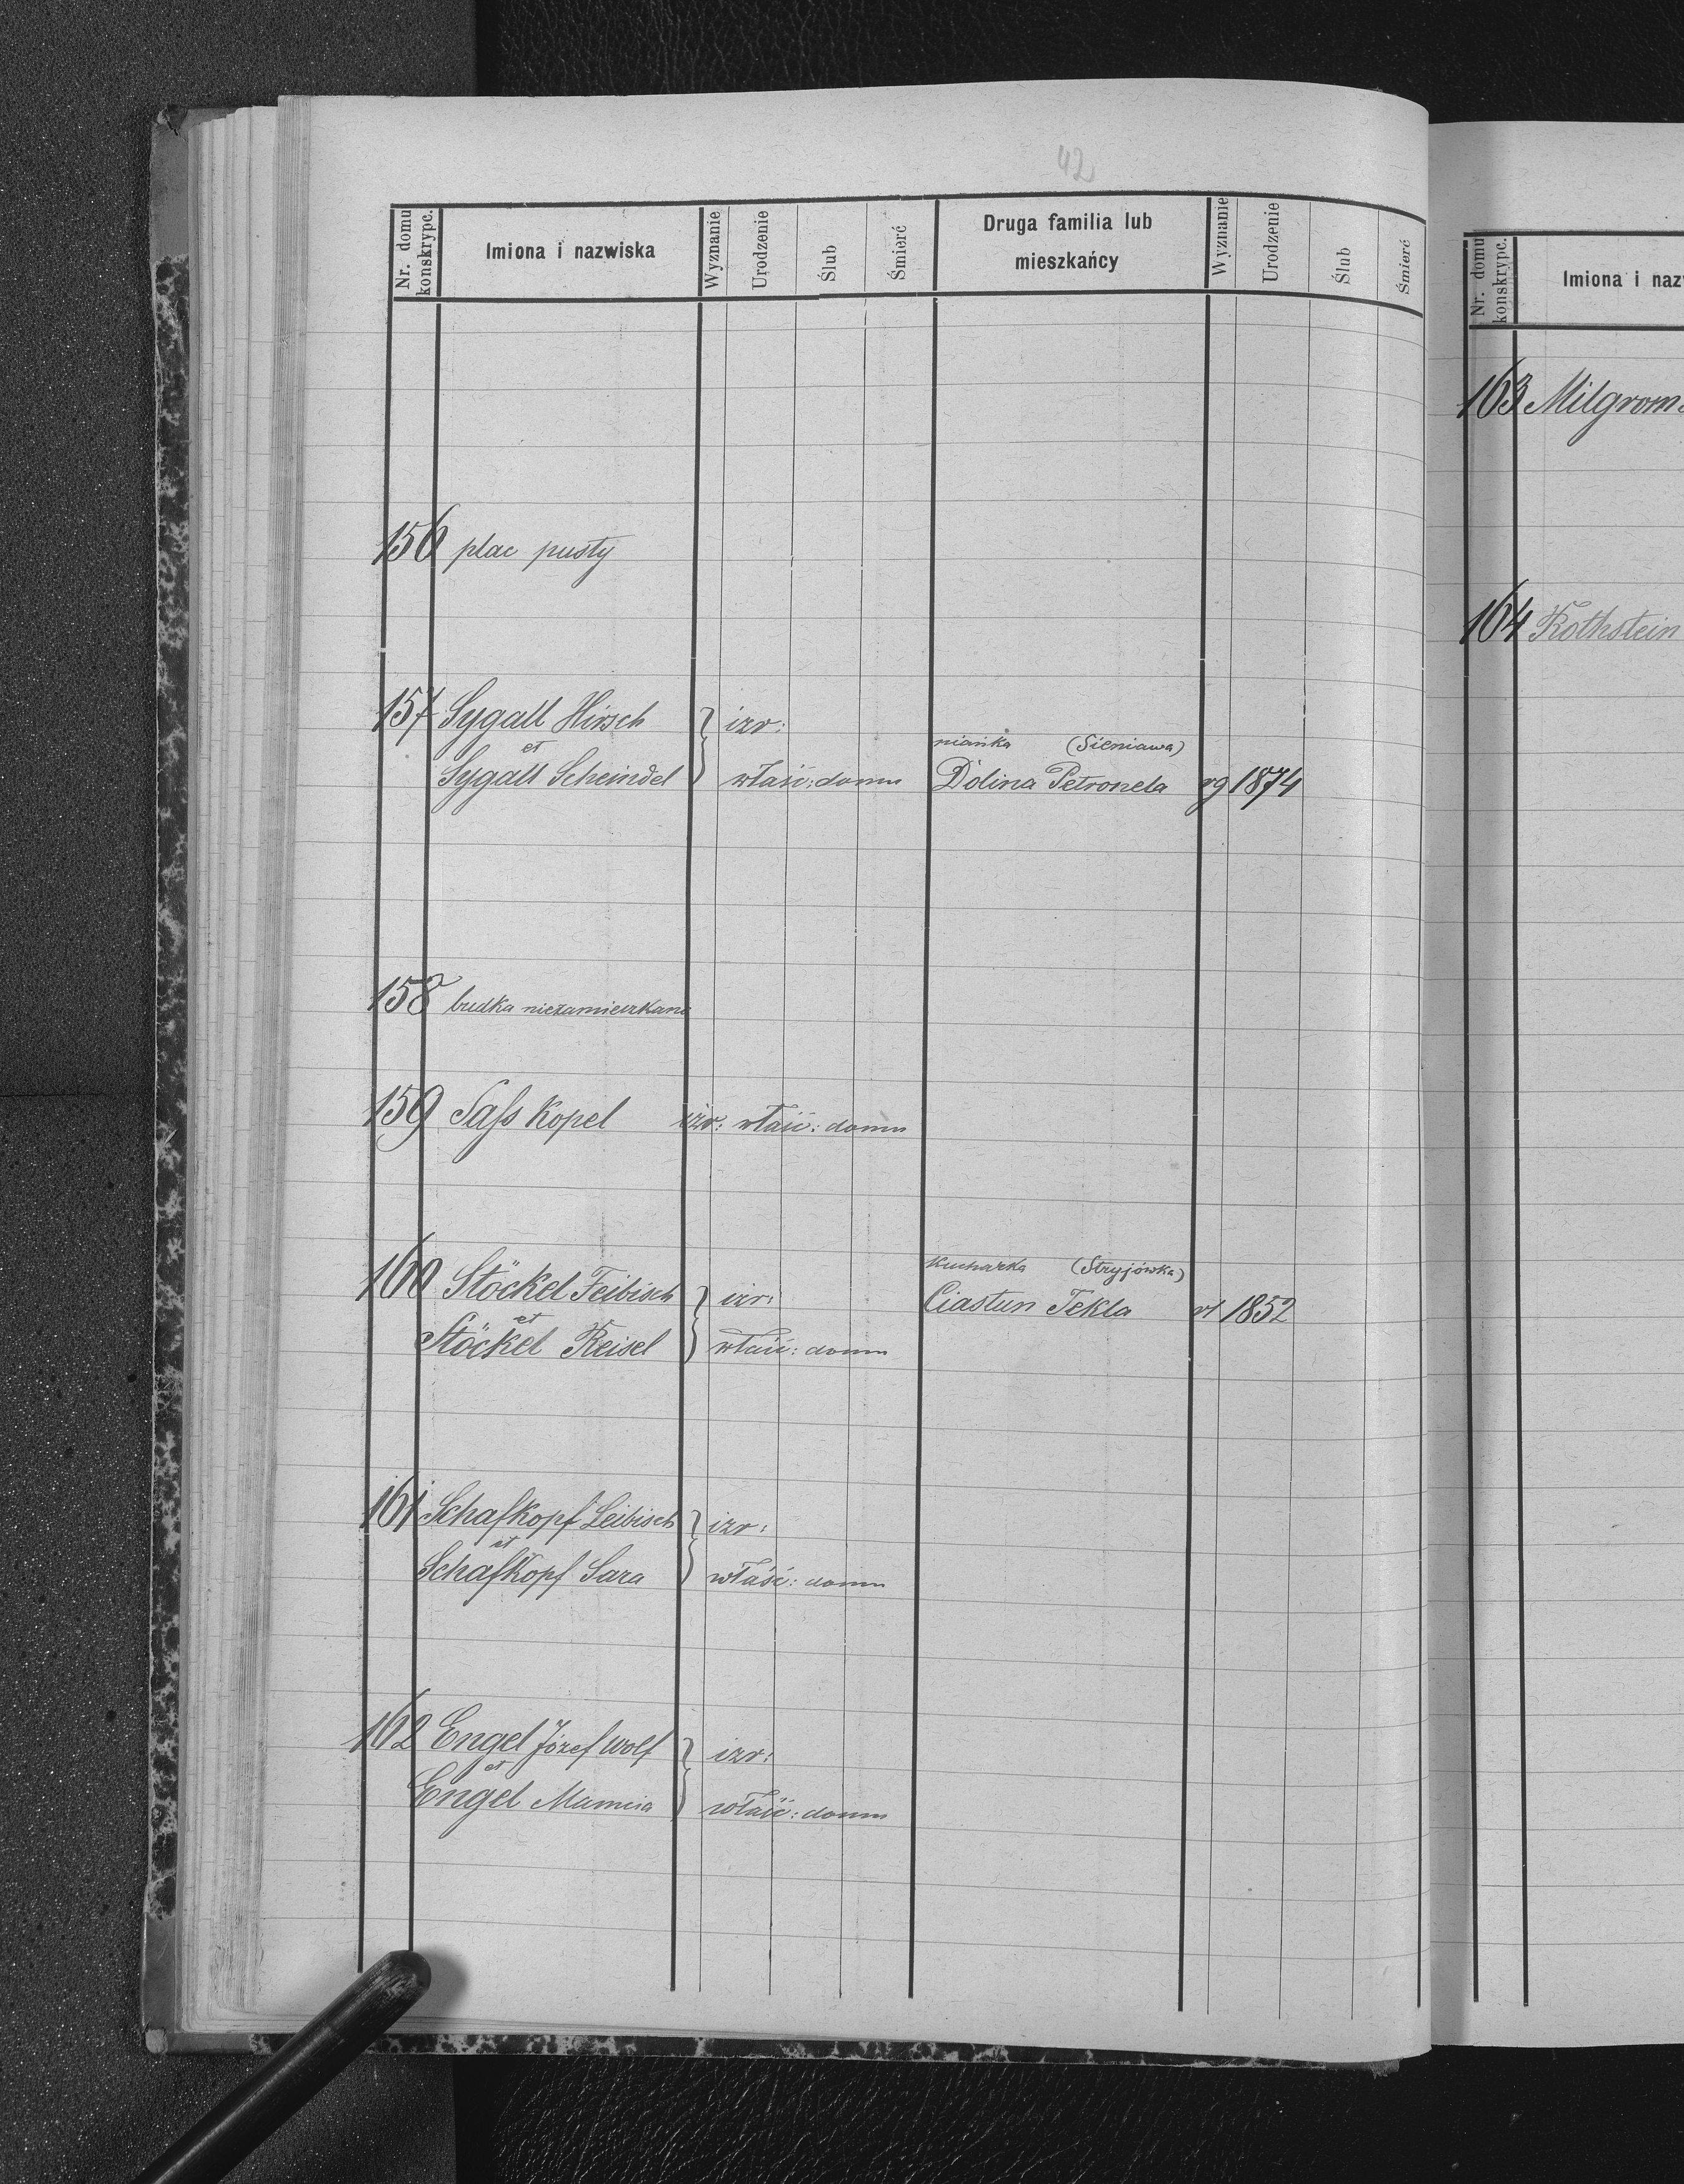 42
Nr. domu konskrypc. Imiona i nazwiska Wyznanie Urodzenie Ślub Śmierć Druga familia lub mieszkańcy Wyznanie Urodzenie Ślub Śmierć
156 plac pusty
157 Sygall Hirsch } izr:
et nianka (Sieniawa)
Sygall Scheindel } właść: domu Dolina Petronela rg 1874
158 budka niezamieszkana
159 Sass Kopel izr: właść: domu
kucharka (Stryjówka)
160 Stöckel Feibisch } izr: Ciastun Tekla rł 1852
et
Stöckel Reisel } właść: domu
161 Schafkopf Leibisch } izr:
et
Schafkopf Sara } właść: domu
162 Engel Józef Wolf } izr:
et
Engel } właść: domu
Nr. domu konskrypc. Imiona i naz
163 Milgrom
164 Rothstein